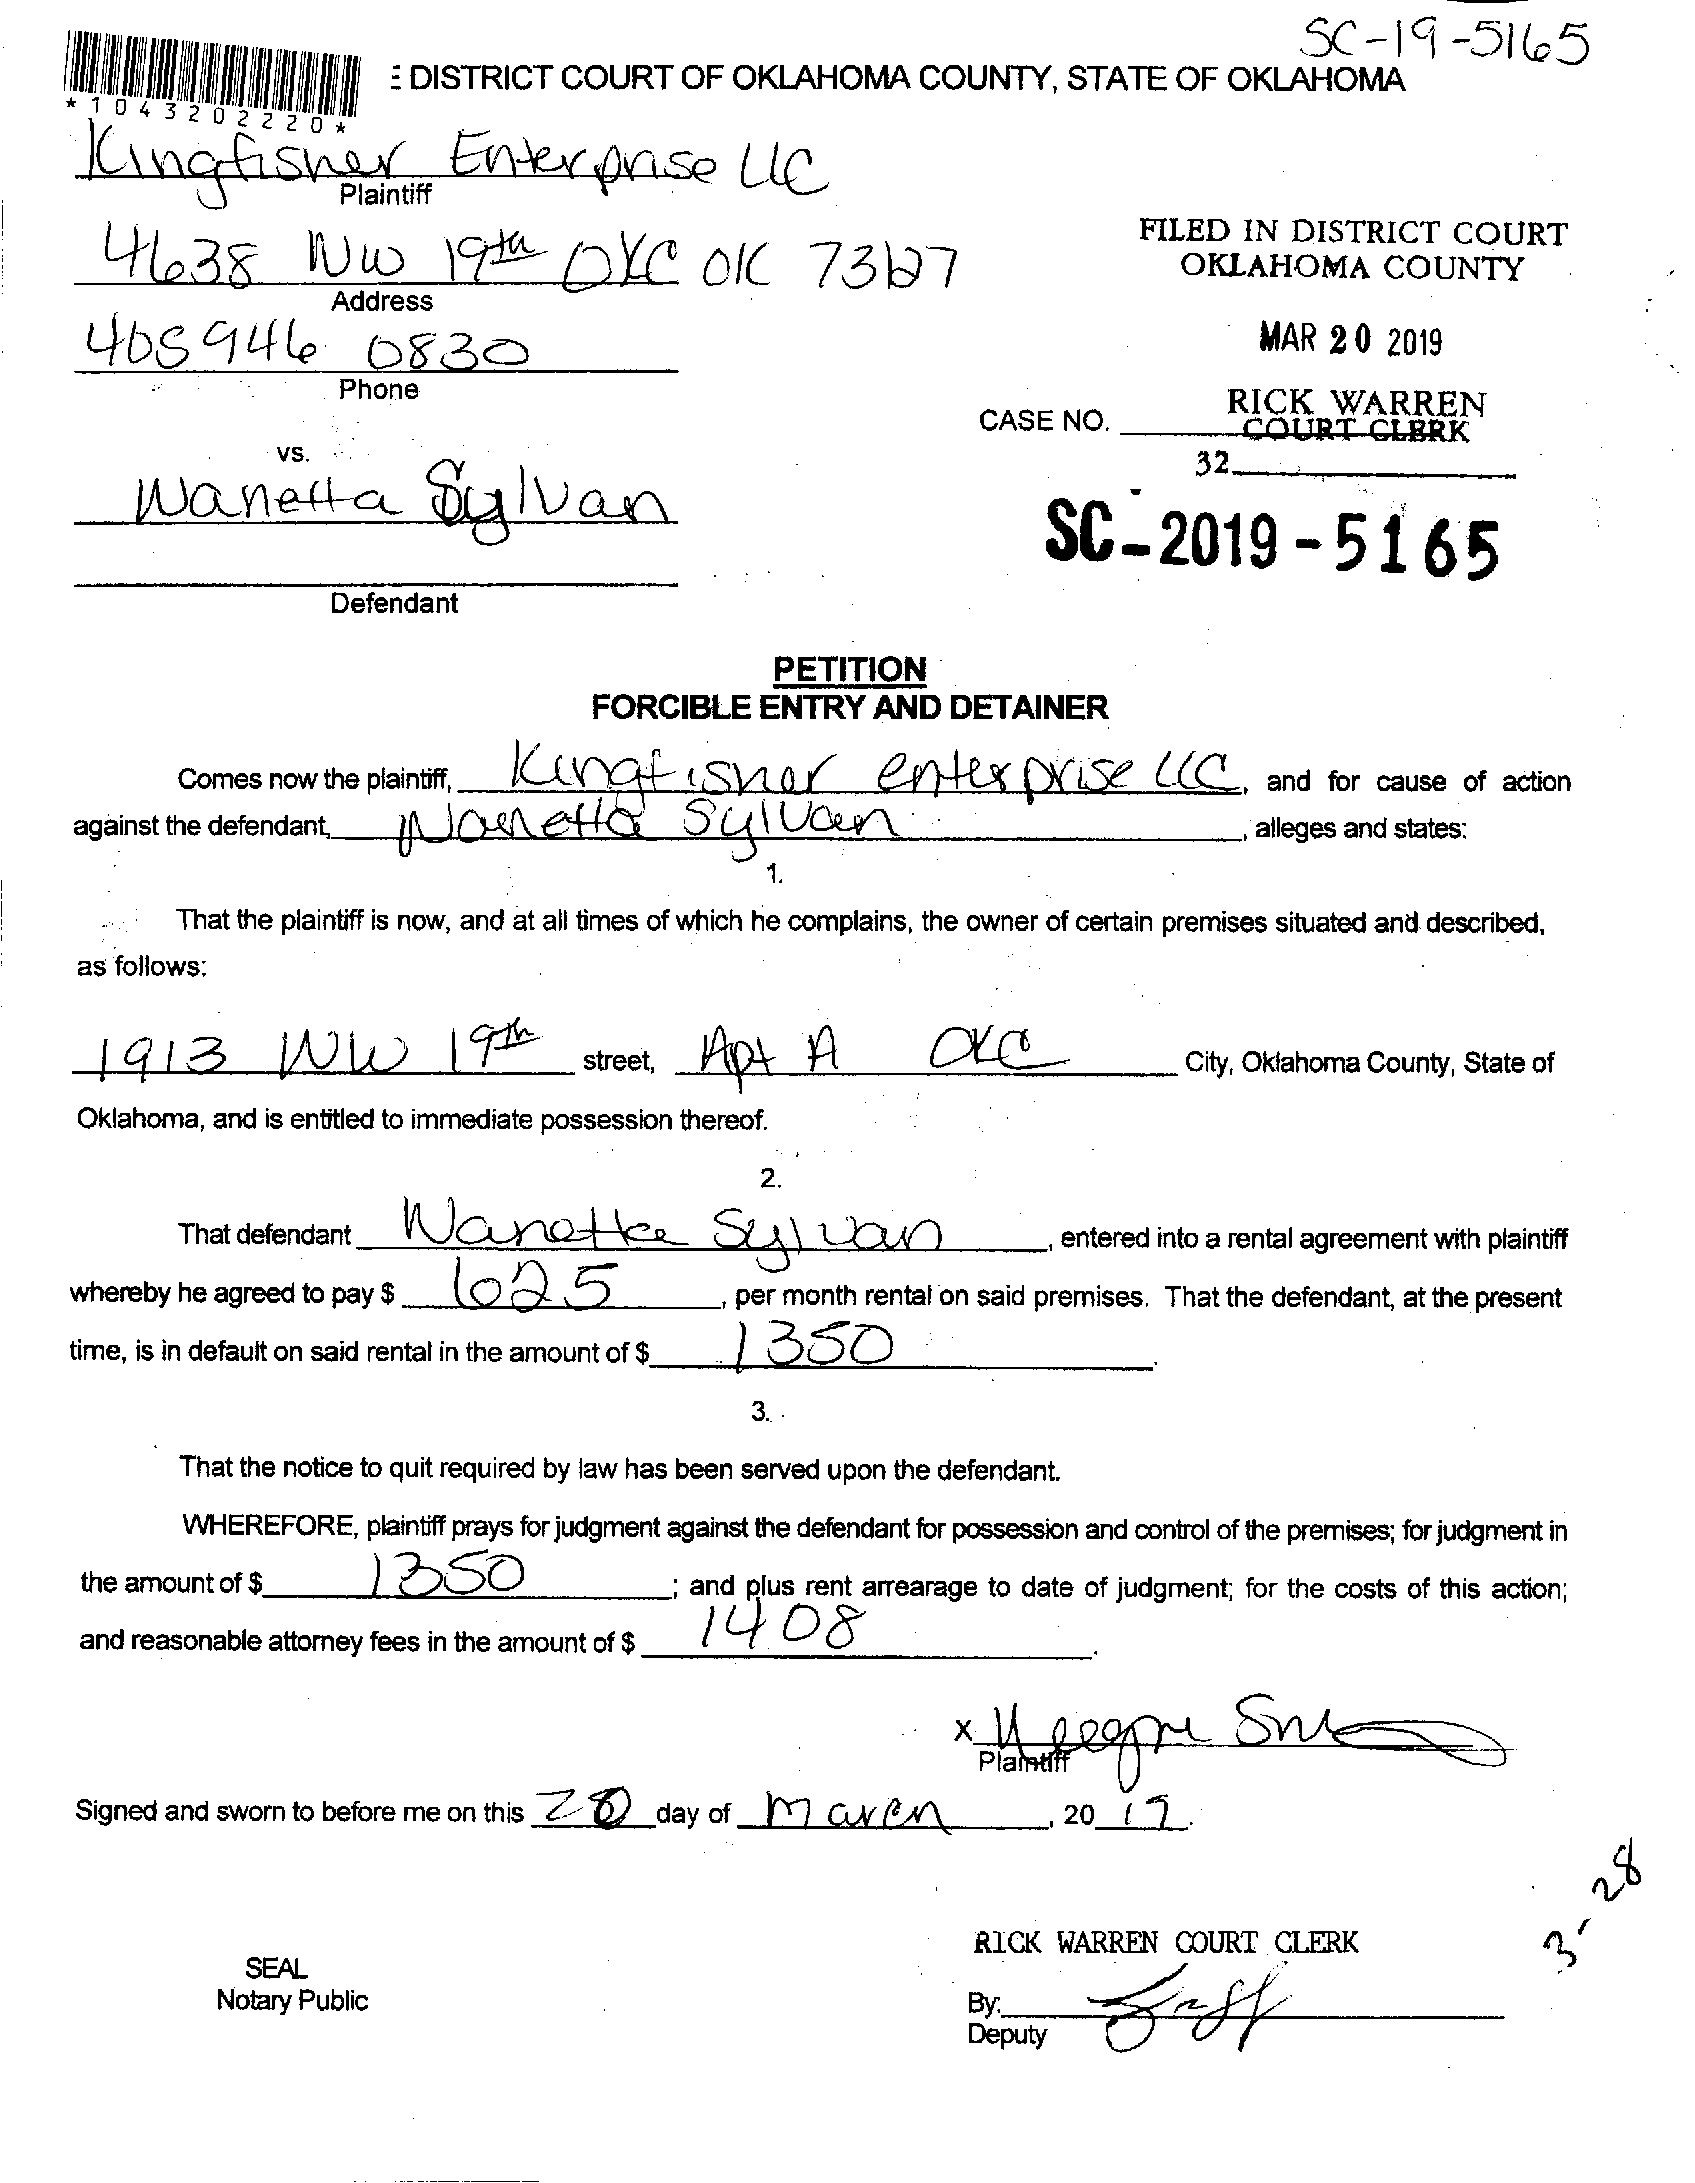 SC-19-5165
E DISTRICT COURT OF OKLAHOMA COUNTY, STATE OF OKLAHOMA
*1043202220*
Kingfisher Enterprise LLC
Plaintiff
4638 NW 19th OKC OK 73127
Address
405 946 0830
Phone
FILED IN DISTRICT COURT
OKLAHOMA COUNTY
MAR 20 2019
RICK WARREN
COURT CLERK
CASE NO.
32
vs.
Wanetta Sylvan
SC-2019-5165
Defendant
PETITION
FORCIBLE ENTRY AND DETAINER
Comes now the plaintiff, Kingfisher enterprise LLC, and for cause of action
against the defendant, Wanetta Sylvan, alleges and states:
1.
That the plaintiff is now, and at all times of which he complains, the owner of certain premises situated and described,
as follows:
1913 NW 19th street, Apt A OKC City, Oklahoma County, State of
Oklahoma, and is entitled to immediate possession thereof.
2.
That defendant Wanetta Sylvan, entered into a rental agreement with plaintiff
whereby he agreed to pay $ 625, per month rental on said premises. That the defendant, at the present
time, is in default on said rental in the amount of $ 1350.
3.
That the notice to quit required by law has been served upon the defendant.
WHEREFORE, plaintiff prays for judgment against the defendant for possession and control of the premises; for judgment in
the amount of $ 1350; and plus rent arrearage to date of judgment; for the costs of this action;
and reasonable attorney fees in the amount of $ 1408.
x
Plaintiff
Signed and sworn to before me on this 20 day of March, 2019.
3-28
RICK WARREN COURT CLERK
SEAL
Notary Public
By:
Deputy